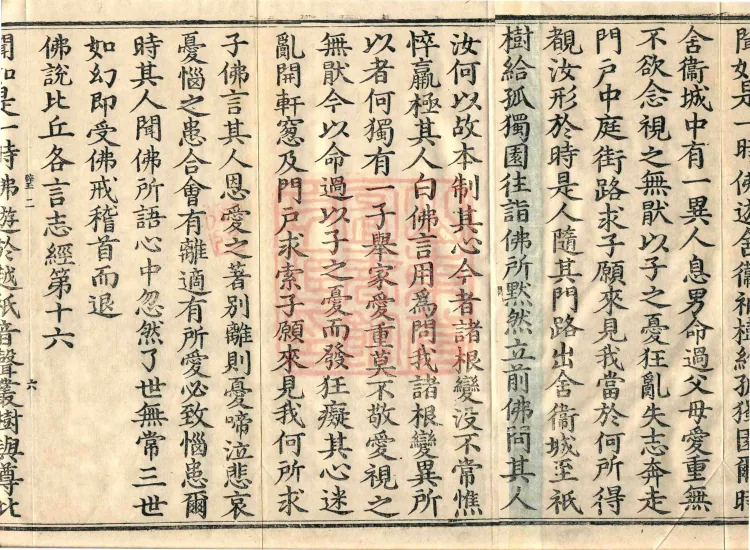 如是一時佛遊舍衛祇樹給孤獨園爾時
舍衛城中有一異人息男命過父母愛重無
不欲念視之無猒以子之憂狂亂失志奔走
門戶中庭街路求子願來見我當於何所得
覩汝形於時是人隨其門路出舍衛城至祇
樹給孤獨園往詣佛所默然立前佛問其人
汝何以故本制其心今者諸根變没不常憔
悴羸極其人白佛言用為問我諸根變異所
以者何獨有一子舉家愛重莫不敬愛視之
無猒今以命過以子之憂而發狂癡其心迷
亂開軒窻及門戶求索子願來見我何所求
子佛言其人恩愛之著別離則憂啼泣悲哀
憂惱之患合會有離適有所愛必致惱患爾
時其人聞佛所語心中忽然了世無常三世
如幻即受佛戒稽首而退
佛說比丘各言志經第十六
二 六
聞如是一時佛遊於越祇音聲叢樹與尊比